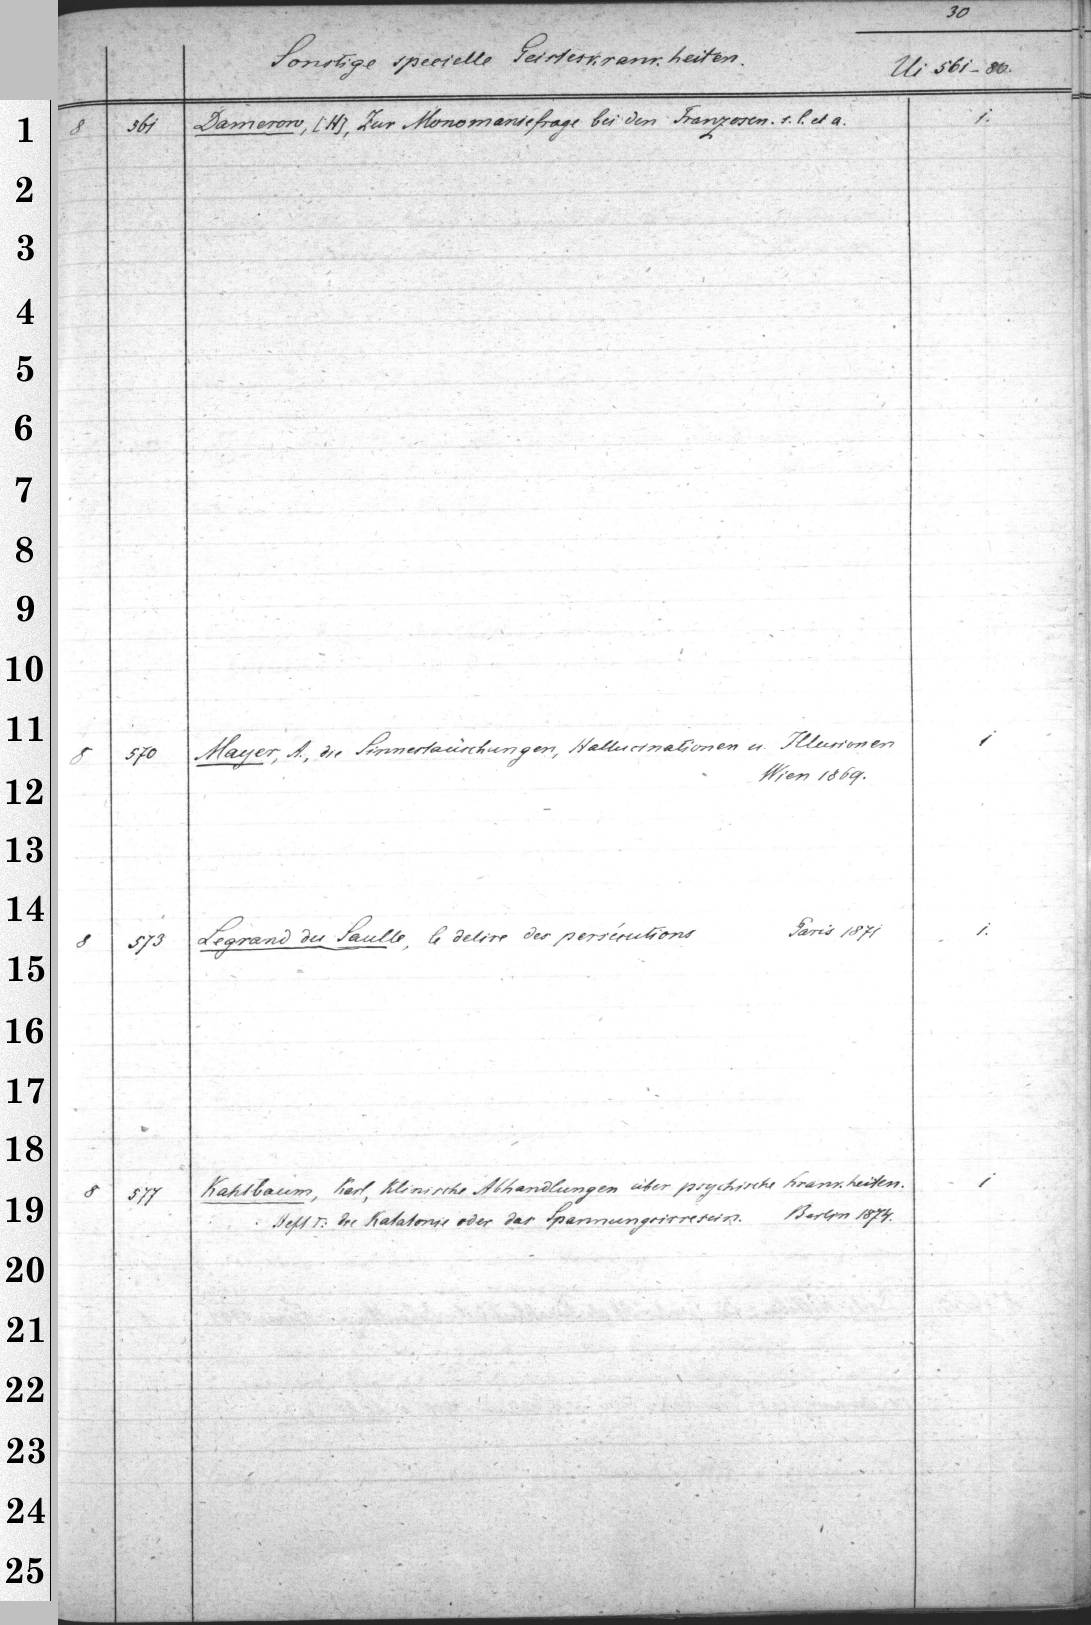 30
Sonstige specielle Geisteskrankheiten.
Ui 561-80.
1 8 561 Damerow, [H], Zur Monomaniefrage bei den Franzosen. s. l. et a. 1.
2
3
4
5
6
7
8
9
10
11 8 570 Mayer, A., die Sinnestäuschungen, Hallucinationen u. Illusionen 1
12 Wien 1869.
13
14 8 573 Legrand du Saulle, le delire des persécutions Paris 1871 1.
15
16
17
18
19 8 577 Kahlbaum, Karl, Klinische Abhandlungen über psychische Krankheiten. 1
Heft I: die Katatonie oder das Spannungsirresein. Berlin 1874.
20
21
22
23
24
25